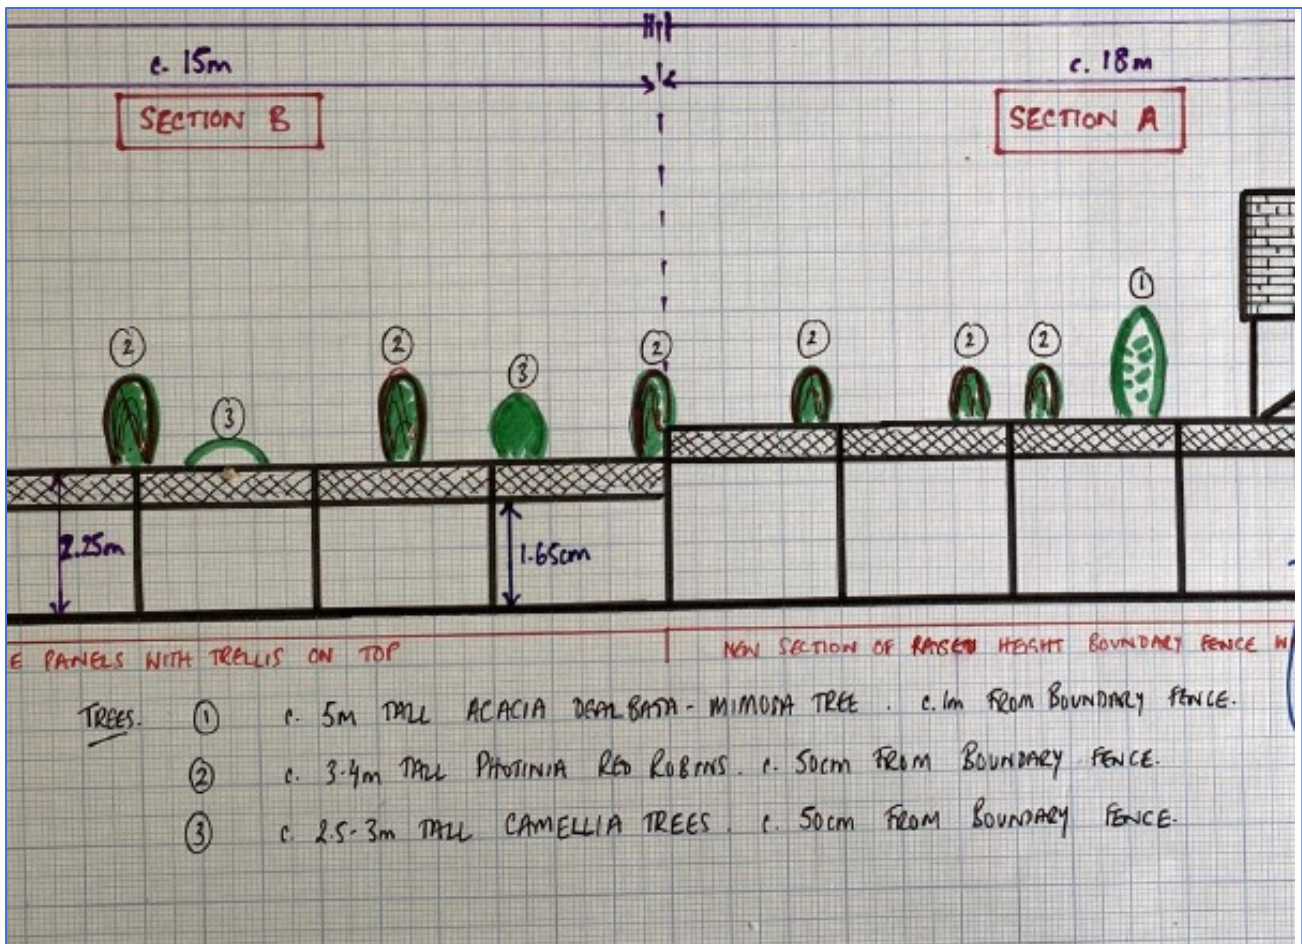 c. 15m
c. 18m
SECTION B
SECTION A
1
2
2
3
2
2
2
2
3
2.25m
1.65cm
E PANELS WITH TRELLIS ON TOP
NEW SECTION OF RAISED HEIGHT BOUNDARY FENCE W
TREES. 1 c. 5m TALL ACACIA DEALBATA - MIMOSA TREE. c. 1m FROM BOUNDARY FENCE.
2 c. 3-4m TALL PHOTINIA RED ROBINS. c. 50cm FROM BOUNDARY FENCE.
3 c. 2.5-3m TALL CAMELLIA TREES. c. 50cm FROM BOUNDARY FENCE.